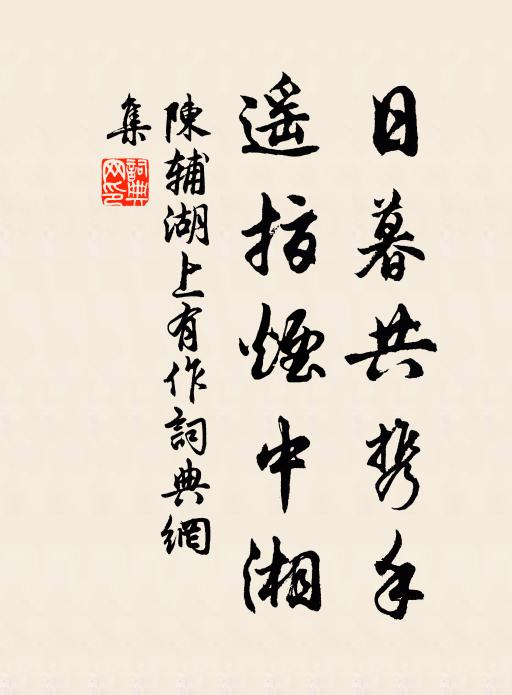 日暮共携手
遥指煙中湘
陳輔湖上有作詞典網
集
詞典
网印